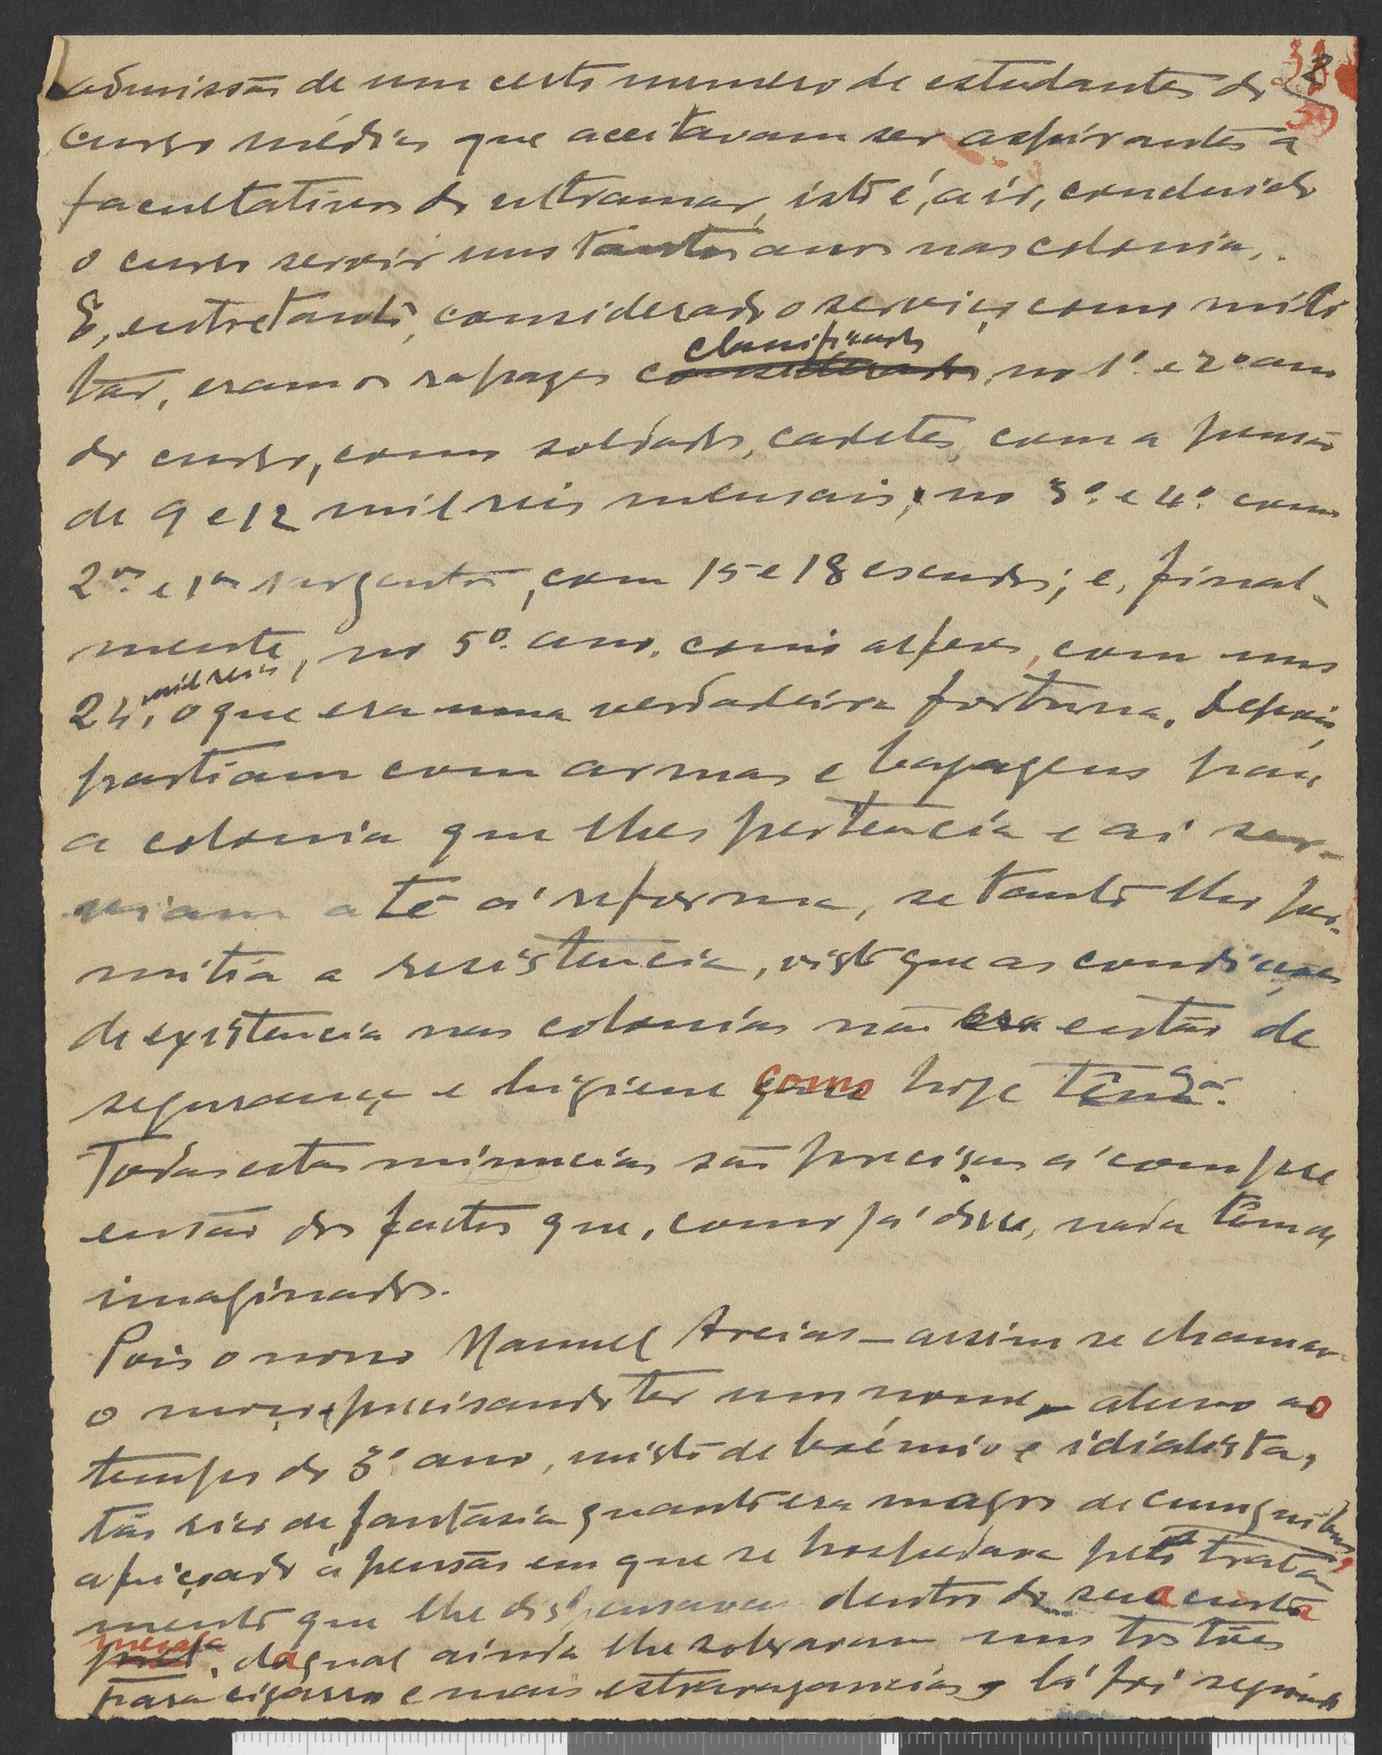 admissão de um certo numero de estudantes do 3
curso médico que aceitavam ser aspirantes a
facultativos do ultramar, isto é, a ir, concluido
o curso servir uns tantos anos nas colonias.
E, entretanto, considerado o serviço como mili
tar, eram os rapazes considerados classificados, no 1º e 2º ano
do curso, como soldados, cadetes, com a pensão
de 9 e 12 mil reis mensais; no 3º. e 4º. como
2ºs. e 1ºs sargentos, com 15 e 18 escudos; e, final-
mente, no 5º. ano, como alferes, com uns
24 mil reis, o que era uma verdadeira fortuna. Depois,
partiam com armas e bagagens para
a colonia que lhes pertencia e aí ser-
viam até á reforma, se tanto lhes per-
mitia a resistencia, visto que as condições
de existencia nas colonias não era então de
segurança e higiene como hoje
Todas estas minucias são precisas á compre
ensão dos factos que, como já disse, nada têm de
imaginados.
Pois o nosso Manuel Areias - assim se chamava
o moço, precisando ter um nome, - aluno ao
tempo do 3º ano, misto de boémio e idialista,
tão rico de fantasia quanto era magro de cumquibus,
afeiçoado á pensão em que se hospedava pelo trata
mento que lhe dispensavam dentro da sua curta
mesada pret, da qual ainda lhe sobravam uns tostões
para cigarros e mais extravagancias, lá foi seguindo